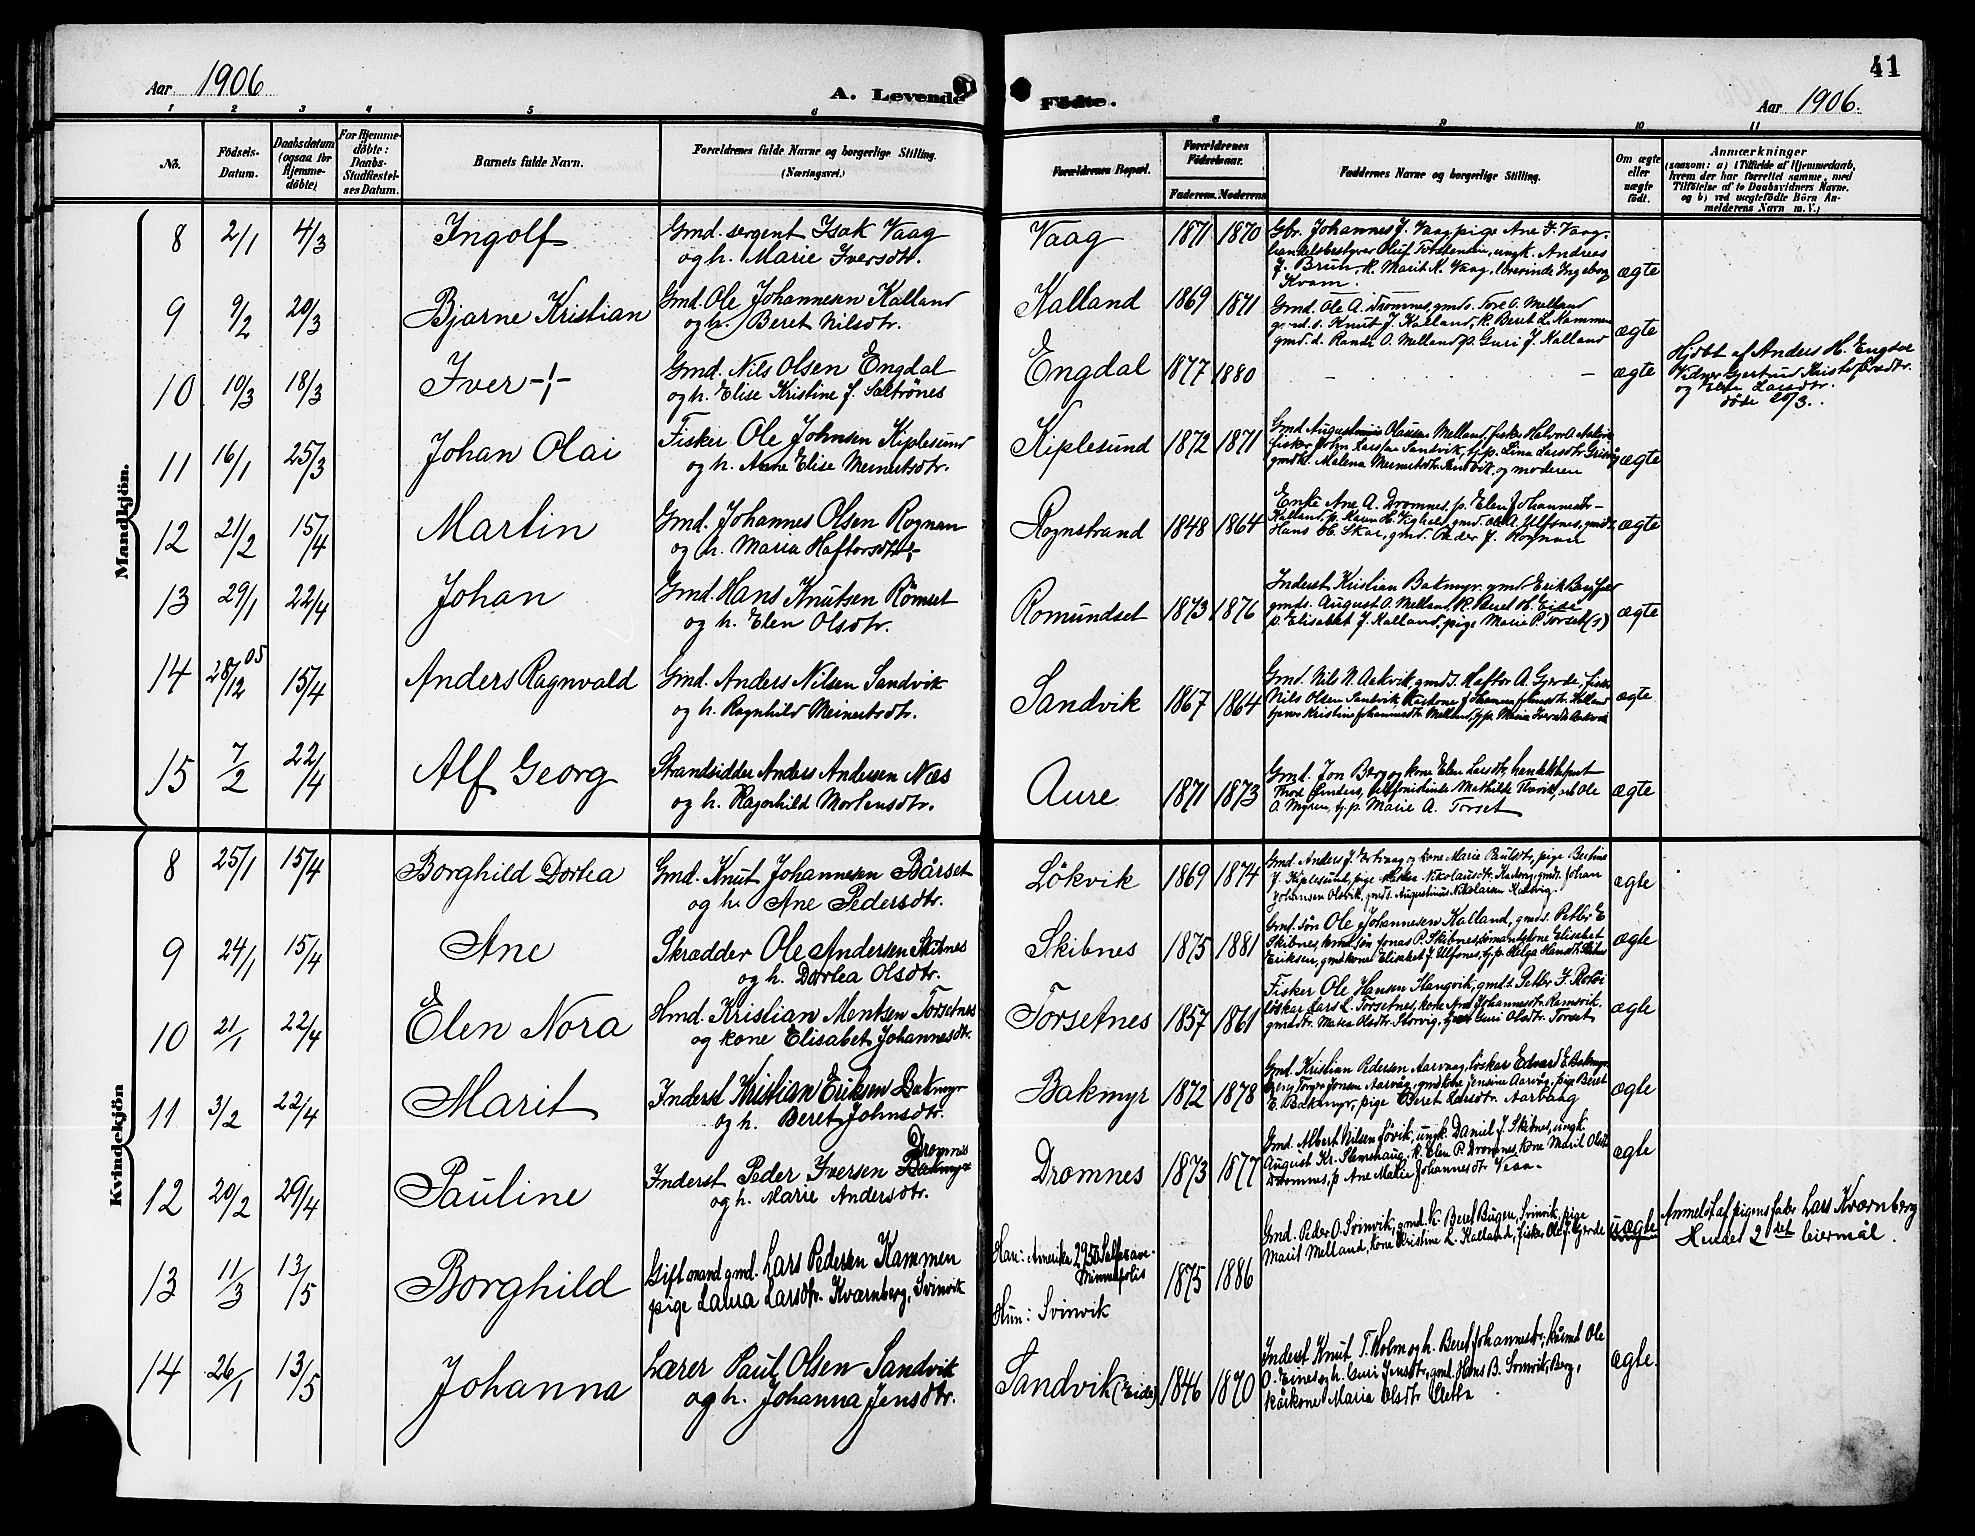 Aar 1906
A. Levende Födte.
41
Aar 1906.
1 2 3 4 5 6 8 9 10 11
No.
Födsels-
Datum.
Daabsdatum
(ogsaa for
Hjemme-
döbte)
For Hjemme-
döbte:
Daabs-
Stadfæstel-
ses Datum.
Barnets fulde Navn.
Forældrenes fulde Navne og borgerlige Stilling.
(Næringsvei.)
Forældrenes Bopæl.
Forældrenes
Födselsaar.
Faderens. Moderens.
Faddernes Navne og borgerlige Stilling.
Om ægte
eller
uægte
födt.
Anmærkninger
(saasom: a) i Tilfælde af Hjemmedaab,
hvem der har forrettet samme, med
Tilföielse af to Daabsvidners Navne.
og b) ved uægtefödte Börn An-
melderens Navn m. V.)
Mandkjön.
8 2/1 4/3 Ingolf
Gmd. sergent Isak Vaag
og h. Marie Iversdtr.
Vaag 1871 1870
Gbr. Johannes J. Vaag, pige Ane J. Vaag,
handelsbestyrer Oluf Torstensen, ungk. Andreas
J. Brun, k. Marit K. Vaag, Ingeborg
Kvam.
ægte
9 9/2 20/3 Bjarne Kristian
Gmd. Ole Johannesen Kalland
og h. Beret Nilsdtr.
Kalland 1869 1871
Gmd. Ole A. Dromnes, gmds. Tore O. Melland
Knut J. Kalland, k. Beret L. Kammen
gmd. d. Randi O. Melland, p. Guri J. Kalland
ægte
10 10/3 18/3 Iver -¦-
Gmd. Nils Olsen Engdal
og h. Elise Kristine J. Saltrönes
Engdal 1877 1880
- -
ægte
Hjdbt af Anders H. Engdal
Vidner Gjertrud Kristofersdtr.
og Larsdtr.
döde 20/3.
11 16/1 25/3 Johan Olai
Fisker Ole Johnsen Kiplesund
og h. Anne Elise Meinertsdtr.
Kiplesund 1872 1871
Gmd. Augustinus Olausen Melland, fisker Halvor
fisker John Larssen Sandvik, tj.p. Lina Larsdtr.
gmdk. Malena Meinertsdtr. og moderen
ægte
12 21/2 15/4 Martin
Gmd. Johannes Olsen Rognan
og h. Maria Haftorsdtr.
Rognstrand 1848 1864
Enke Ane A. Dromnes, p. Elen Johannesdtr.
Kalland, p. Karen H. gmd. Ole A. Ulfsnes,
Hans Skar, gmd. Peder J. Rognan
ægte
13 29/1 22/4 Johan
Gmd. Hans Knutsen Römset
og h. Elen Olsdtr.
Romundset 1873 1876
Inderst Kristian Bakmyr, gmd. Erik
gmds. August O. Melland, k. Beret
p. Elisabet J. Kalland, pige Marie P. Torset (s)
ægte
14 28/12 05 15/4 Anders Ragnvald
Gmd. Anders Nilsen Sandvik
og h. Ragnhild Meinertsdtr.
Sandvik 1867 1864
Gmd. Nils N. Aakvik, gmds. Haftor A. Gjerde, fisker
Nils Olsen Sandvik Kalland
Kristine Johannesdtr. Melland, tj.p. Maria
ægte
15 7/2 22/4 Alf Georg
Strandsidder Anders Andersen Næs
og h. Ragnhild Mortensdtr.
Aure 1871 1873
Gmd. Jon Berg og kone Elen Larsdtr.,
Mathilde Ole
O. Myren, tj.p. Marie A. Torset
ægte
Kvindekjön
8 25/1 15/4 Borghild Dortea
Gmd. Knut Johannesen Bårset
og h. Ane Pedersdtr.
Lökvik 1869 1874
Gmd. Anders J. Ertvaag og kone Marie Paulsdtr., pige Bertine
J. Kiplesund, pige Nikolausdtr. gmds. Johan
Johansen Olsvik, gmds. Augustinus Nikolaisen
ægte
9 24/1 15/4 Ane
Skrædder Ole Andersen Skibnes
og h. Dortea Olsdtr.
Skibnes 1875 1881
Gmd. sön Ole Johannesen Kalland, gmds. Petter E
Skibnes, sön Jonas P. Skibnes, Elisabet
Eriksen, gmdkone Elisabet J. Ulfsnes, tj.p. Helga Hansdtr.
ægte
10 21/1 22/4 Elen Nora
Hmd. Kristian Mentsen Torsetnes
og kone Elisabet Johannesdtr.
Torsetnes 1857 1861
Fisker Ole Hansen Stangvik, gmds. Petter J.
Lars L. Torsetnes, kone Ane Johannesdtr. Ramsvik
gmdtr. Marta Olsdtr. Guri Olsdtr. Torset
ægte
11 3/2 22/4 Marit
Inderst Kristian Eriksen Bakmyr
og h. Beret Johnsdtr.
Bakmyr 1872 1878
Gmd. Kristian Pedersen Aarvaag, Edvard E. Bakmyr
Jonsen Aarvåg, gmdkone Jensine Aarvåg, pige Beret
E. Bakmyr, pige Beret Larsdtr. Aarvaag
ægte
12 20/2 29/4 Pauline
Inderst Peder Iversen Bakmyr Dromnes
og h. Marie Andersdtr.
Dromnes 1873 1877
Gmd. Albert Nilsen Lövik, ungk. Daniel J. Skibnes, ungk.
August Kr. Stemshaug, k. Elen P. Dromnes, kone Marit Olsdtr.
Dromnes, p. Ane Malie Johannesdtr.
ægte
13 11/3 13/5 Borghild
Gift mand gmd. Lars Pedersen Kammen
pige Laura Larsdtr. Kvarnberg, Svinvik
Han: Amerika 2950
Minneapolis
Hun: Svinvik
1875 1886
Gmd. Peder O. Svinvik, gmd. k. Beret Svinvik, pige
Marit Melland, kone Kristine L. Kalland, fisker Ole J. Gjerde
uægte
Anmeldt af pigens fader Lars Kvarnberg
Hendes 2det leiermål.
14 26/1 13/5 Johanna
Lærer Paul Olsen Sandvik
og h. Johanna Jensdtr.
Sandvik (Eide) 1846 1870
Inderst Knut T. Holm og h. Beret Johannesdtr., Ole
O. Eines og h. Guri Jensdtr., gmd. Hans B. Berg,
kårkone Maria Olsdtr.
ægte.